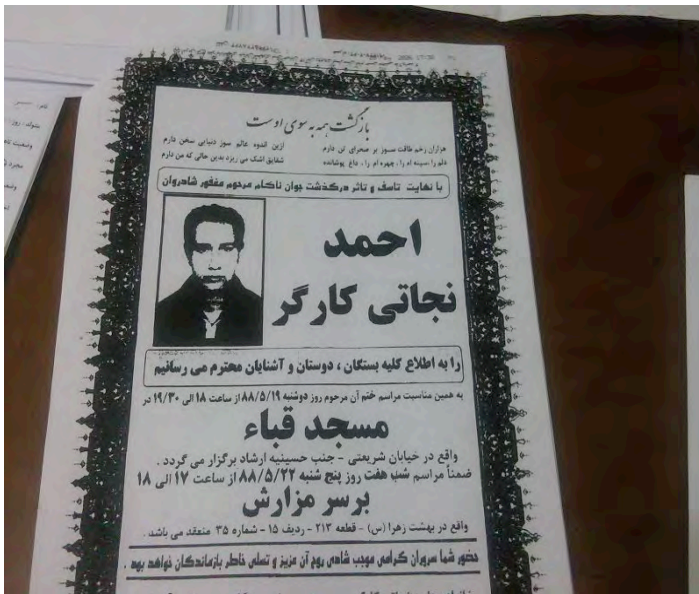 بازگشت همه به سوی اوست
هزاران زخم طاقت سوز بر صحرای تن دارم
ازین اندوه عالم سوز دنیایی سخن دارم
دلم را، سینه ام را، چهره ام را، داغ پوشانده
شقایق اشک می ریزد بدین حالی که من دارم
با نهایت تاسف و تاثر درگذشت جوان ناکام مرحوم مغفور شادروان
احمد
نجاتی کارگر
را به اطلاع کلیه بستگان ، دوستان و آشنایان محترم می رسانیم
به همین مناسبت مراسم ختم آن مرحوم روز دوشنبه ۸۸/۵/۱۹ از ساعت ۱۸ الی ۱۹/۳۰ در
مسجد قباء
واقع در خیابان شریعتی - جنب حسینیه ارشاد برگزار می گردد .
ضمناً مراسم شب هفت روز پنج شنبه ۸۸/۵/۲۲ از ساعت ۱۷ الی ۱۸
برسر مزارش
واقع در بهشت زهرا (س) - قطعه ۲۱۳ - ردیف ۱۵ - شماره ۳۵ منعقد می باشد .
حضور شما سروران گرامی موجب شادی روح آن عزیز و تسلی خاطر بازماندگان خواهد بود .